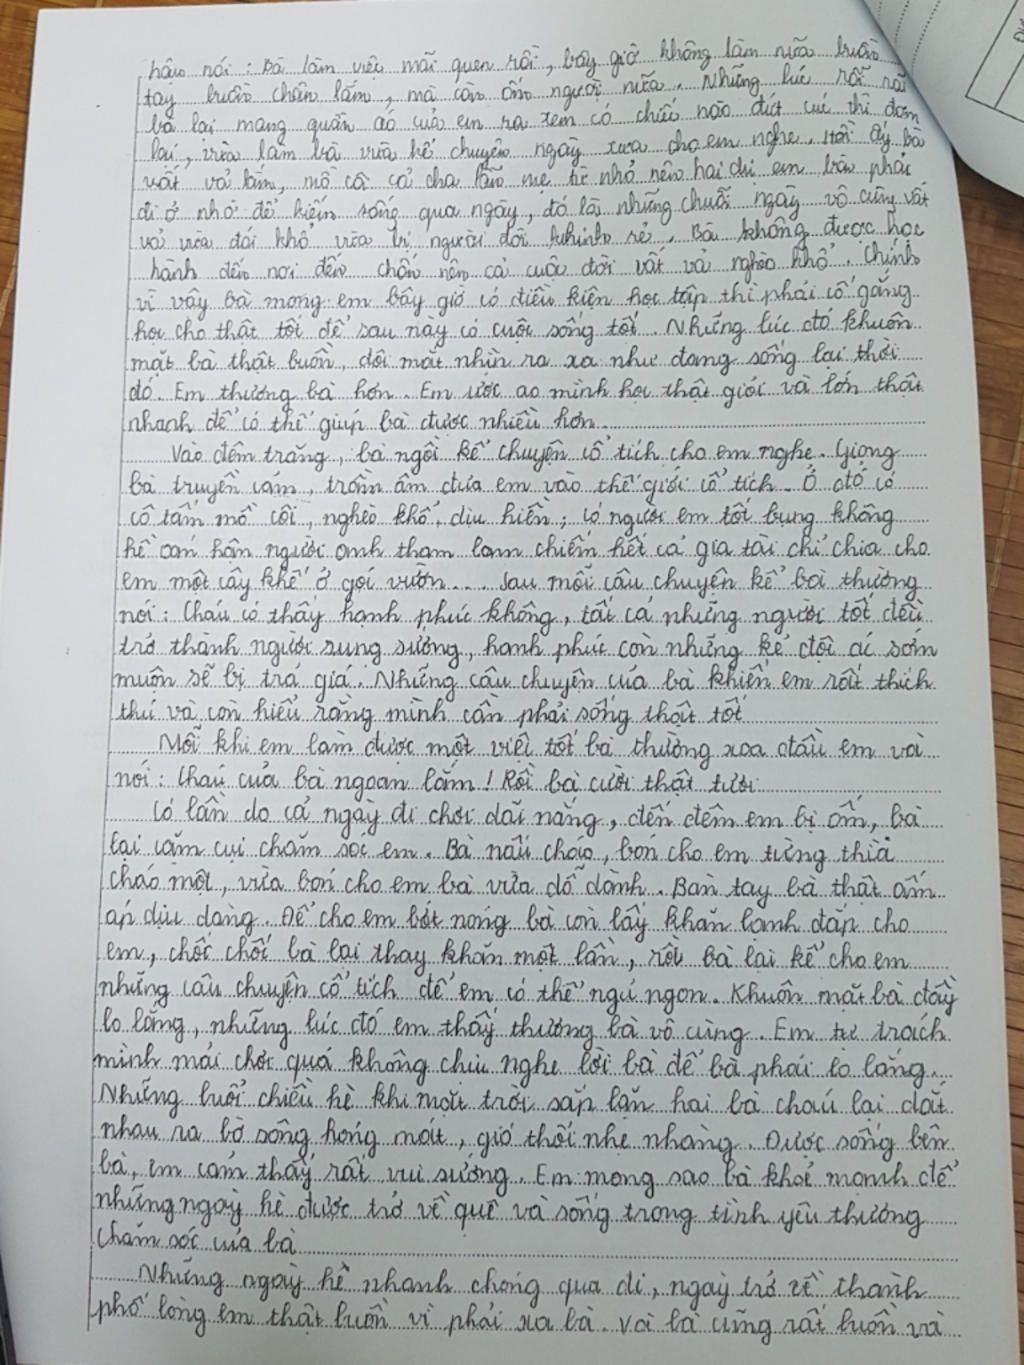 hậu nói: Bà làm việc mãi quen rồi, bây giờ không làm nữa buồn
tay buồn chân lắm, mà còn ốm người nữa. Những lúc rỗi rãi
bà lại mang quần áo của em ra xem có chiếc nào đứt cúc thì đơm
lại, vừa làm bà vừa kể chuyện ngày xưa cho em nghe. Hồi ấy bà
vất vả lắm, mồ côi cả cha lẫn mẹ từ nhỏ nên hai chị em bà phải
đi ở nhờ để kiếm sống qua ngày, đó là những chuỗi ngày vô cùng vất
vả vừa đói khổ vừa bị người đời khinh rẻ. Bà không được học
hành đến nơi đến chốn nên cả cuộc đời vất vả nghèo khổ. Chính
vì vậy bà mong em bây giờ có điều kiện học tập thì phải cố gắng
học cho thật tốt để sau này có cuộc sống tốt. Những lúc đó khuôn
mặt bà thật buồn, đôi mắt nhìn ra xa như đang sống lại thời
đó. Em thương bà hơn. Em ước ao mình học thật giỏi và lớn thật
nhanh để có thể giúp bà được nhiều hơn
Vào đêm trăng, bà ngồi kể chuyện cổ tích cho em nghe. Giọng
bà truyền cảm, trầm ấm đưa em vào thế giới cổ tích. Ở đó có
cô tấm mồ côi, nghèo khổ, dịu hiền; có người em tốt bụng không
hề oán hận người anh tham lam chiếm hết cả gia tài chỉ chia cho
em một cây khế ở gói vườn.... Sau mỗi câu chuyện kể bà thường
nói: Cháu có thấy hạnh phúc không, tất cả những người tốt đều
trở thành người sung sướng, hạnh phúc còn những kẻ độc ác sớm
muộn sẽ bị trả giá. Những câu chuyện của bà khiến em rất thích
thú và còn hiểu rằng mình cần phải sống thật tốt
Mỗi khi em làm được một việc tốt bà thường xoa đầu em và
nói: Cháu của bà ngoan lắm! Rồi bà cười thật tươi
Có lần do cả ngày đi chơi dãi nắng, đến đêm em bị ốm, bà
lại cặm cụi chăm sóc em. Bà nấu cháo, bón cho em từng thìa
cháo một, vừa bón cho em bà vừa dỗ dành. Bàn tay bà thật ấm
áp dịu dàng. Để cho em bớt nóng bà còn lấy khăn lạnh đắp cho
em, chốc chốc bà lại thay khăn một lần, rồi bà lại kể cho em
những câu chuyện cổ tích để em có thể ngủ ngon. Khuôn mặt bà đầy
lo lắng, những lúc đó em thấy thương bà vô cùng. Em tự trách
mình mải chơi quá không chịu nghe lời bà để bà phải lo lắng.
Những buổi chiều hè khi mặt trời sắp lặn hai bà cháu lại dắt
nhau ra bờ sông hóng mát, gió thổi nhẹ nhàng. Được sống bên
bà, em cảm thấy rất vui sướng. Em mong sao bà khoẻ mạnh để
những ngày hè được trở về quê và sống trong tình yêu thương
chăm sóc của bà
Những ngày hè nhanh chóng qua đi, ngày trở về thành
phố lòng em thật buồn vì phải xa bà. Và bà cũng rất buồn và